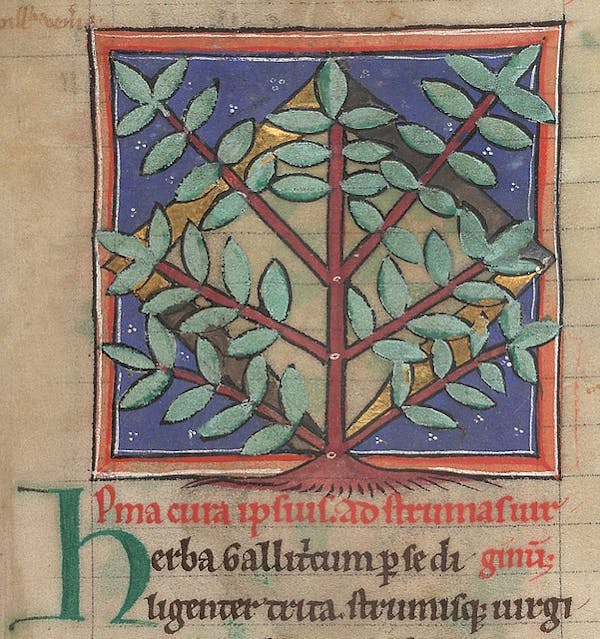 Pͥma cura ipsius. ad strumas uir
herba Gallitͥcum ꝑ se di ginū;
ligenter trita. strumisq; uirgi